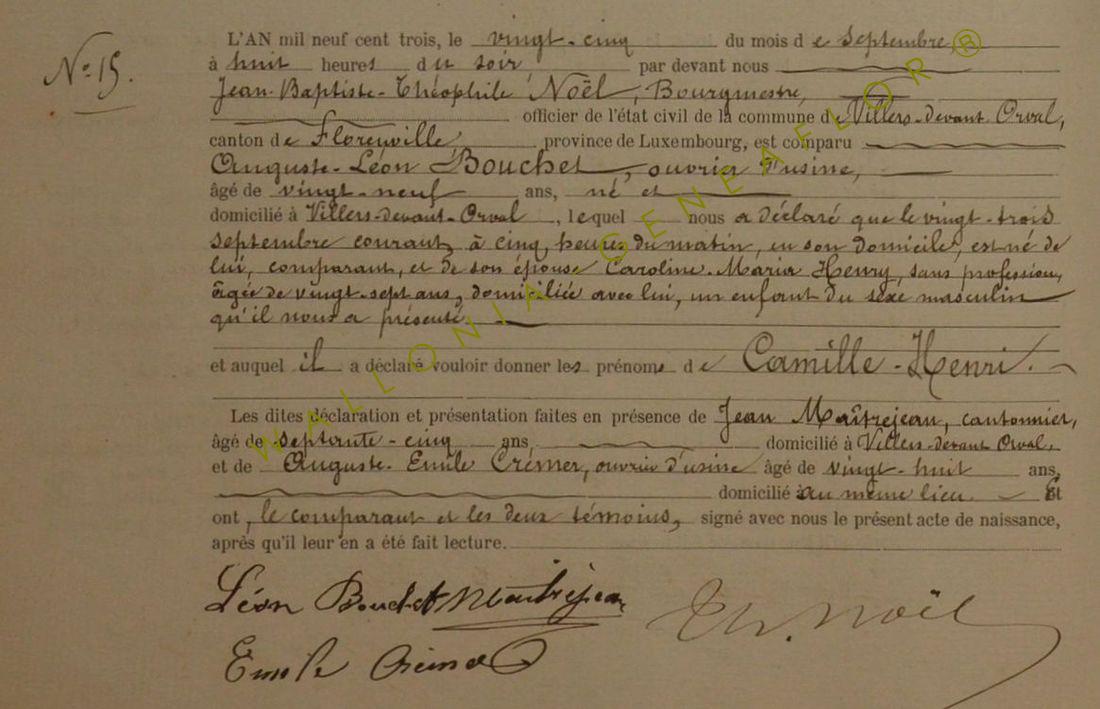 Nº 15.
L'AN mil neuf cent trois, le vingt-cinq du mois d e septembre,
à huit heures d u soir par devant nous
Jean-Baptiste-Théophile Noël, Bourgmestre,
officier de l'état civil de la commune d e Villers-devant-Orval,
canton d e Florenville province de Luxembourg, est comparu
Auguste-Léon Bouchet, ouvrier d'usine,
âgé de vingt-neuf ans, né et
domicilié à Villers-devant-Orval, lequel nous a déclaré que le vingt-trois
septembre courant, à cinq heures du matin, en son domicile, est né de
lui, comparant, et de son épouse Caroline-Maria Henry, sans profession,
âgée de vingt-sept ans, domiciliée avec lui, un enfant du sexe masculin
qu'il nous a présenté.
et auquel il a déclaré vouloir donner les prénoms d e Camille-Henri.
Les dites déclaration et présentation faites en présence de Jean Maîtrejean, cantonnier,
âgé de septante-cinq ans, domicilié à Villers-devant-Orval,
et de Auguste-Emile Crémer, ouvrier d'usine âgé de vingt-huit ans,
domicilié au même lieu. Et
ont, le comparant et les deux témoins, signé avec nous le présent acte de naissance,
après qu'il leur en a été fait lecture.
Léon Bouchet Maitrejean
Th. Noël
Emile Crémer
WALLONIA GENEAFLOR ®